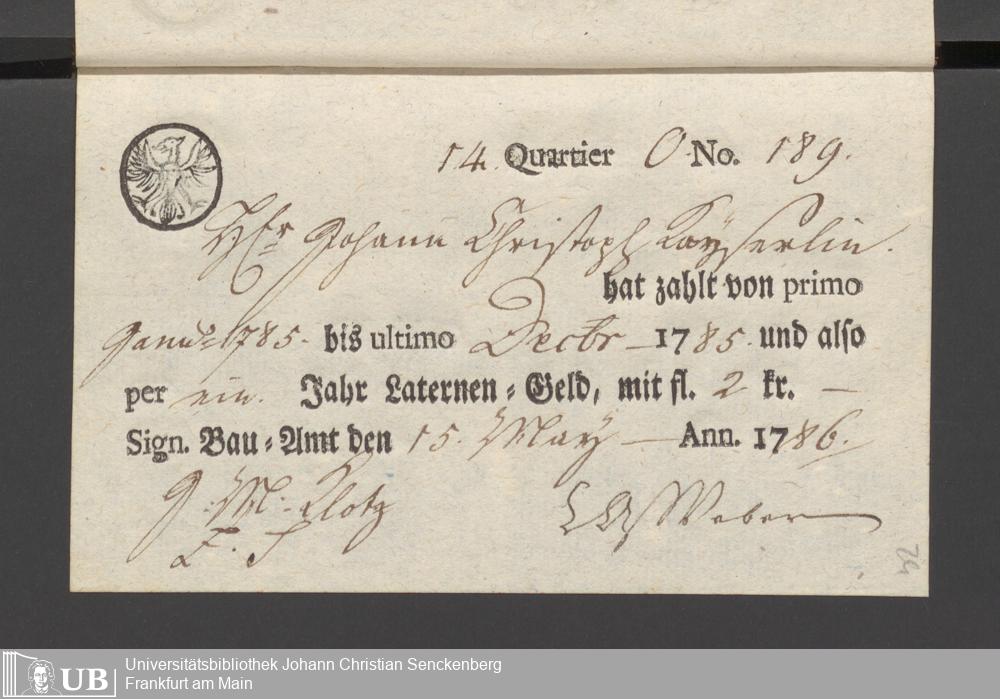 14. Quartier O No. 189.
Hr Johann Christoph Kayserlin.
hat zahlt von primo
Janu: 1785. bis ultimo Decbr 1785. und also
per ein. Jahr Laternen-Geld, mit fl. 2 kr. —
Sign. Bau-Amt den 15. May — Ann. 1786.
J: M: Klotz Weber
24
UB
Universitätsbibliothek Johann Christian Senckenberg
Frankfurt am Main